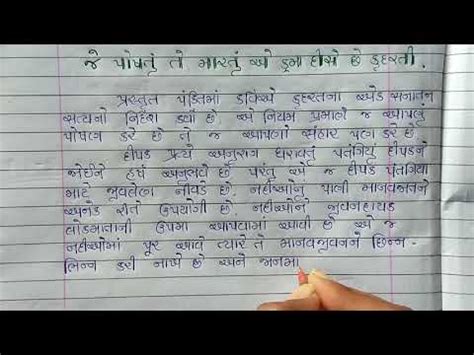 જે પોષતું તે મારતું એ ક્રમ દીસે છે કુદરતી.
પ્રસ્તુત પંક્તિમાં કવિએ કુદરતના એક સનાતન
સત્યનો નિર્દેશ કર્યો છે. એ નિયમ પ્રમાણે જ આપણું
પોષણ કરે છે તે જ આપણો સંહાર પણ કરે છે.
દીપક પ્રત્યે અનુરાગ ધરાવતું પતંગિયું દીપકને
જોઈને હર્ષ અનુભવે છે. પરંતુ એ જ દીપક પતંગિયા
માટે જીવલેણ નીવડે છે. નદીઓનું પાણી માનવજાતને
અનેક રીતે ઉપયોગી છે. નદીઓને જીવનદાયક
લોકમાતાની ઉપમા આપવામાં આવી છે. એ જ
નદીઓમાં પૂર આવે ત્યારે તે માનવજીવનને છિન્ન-
ભિન્ન કરી નાખે છે અને જનમા